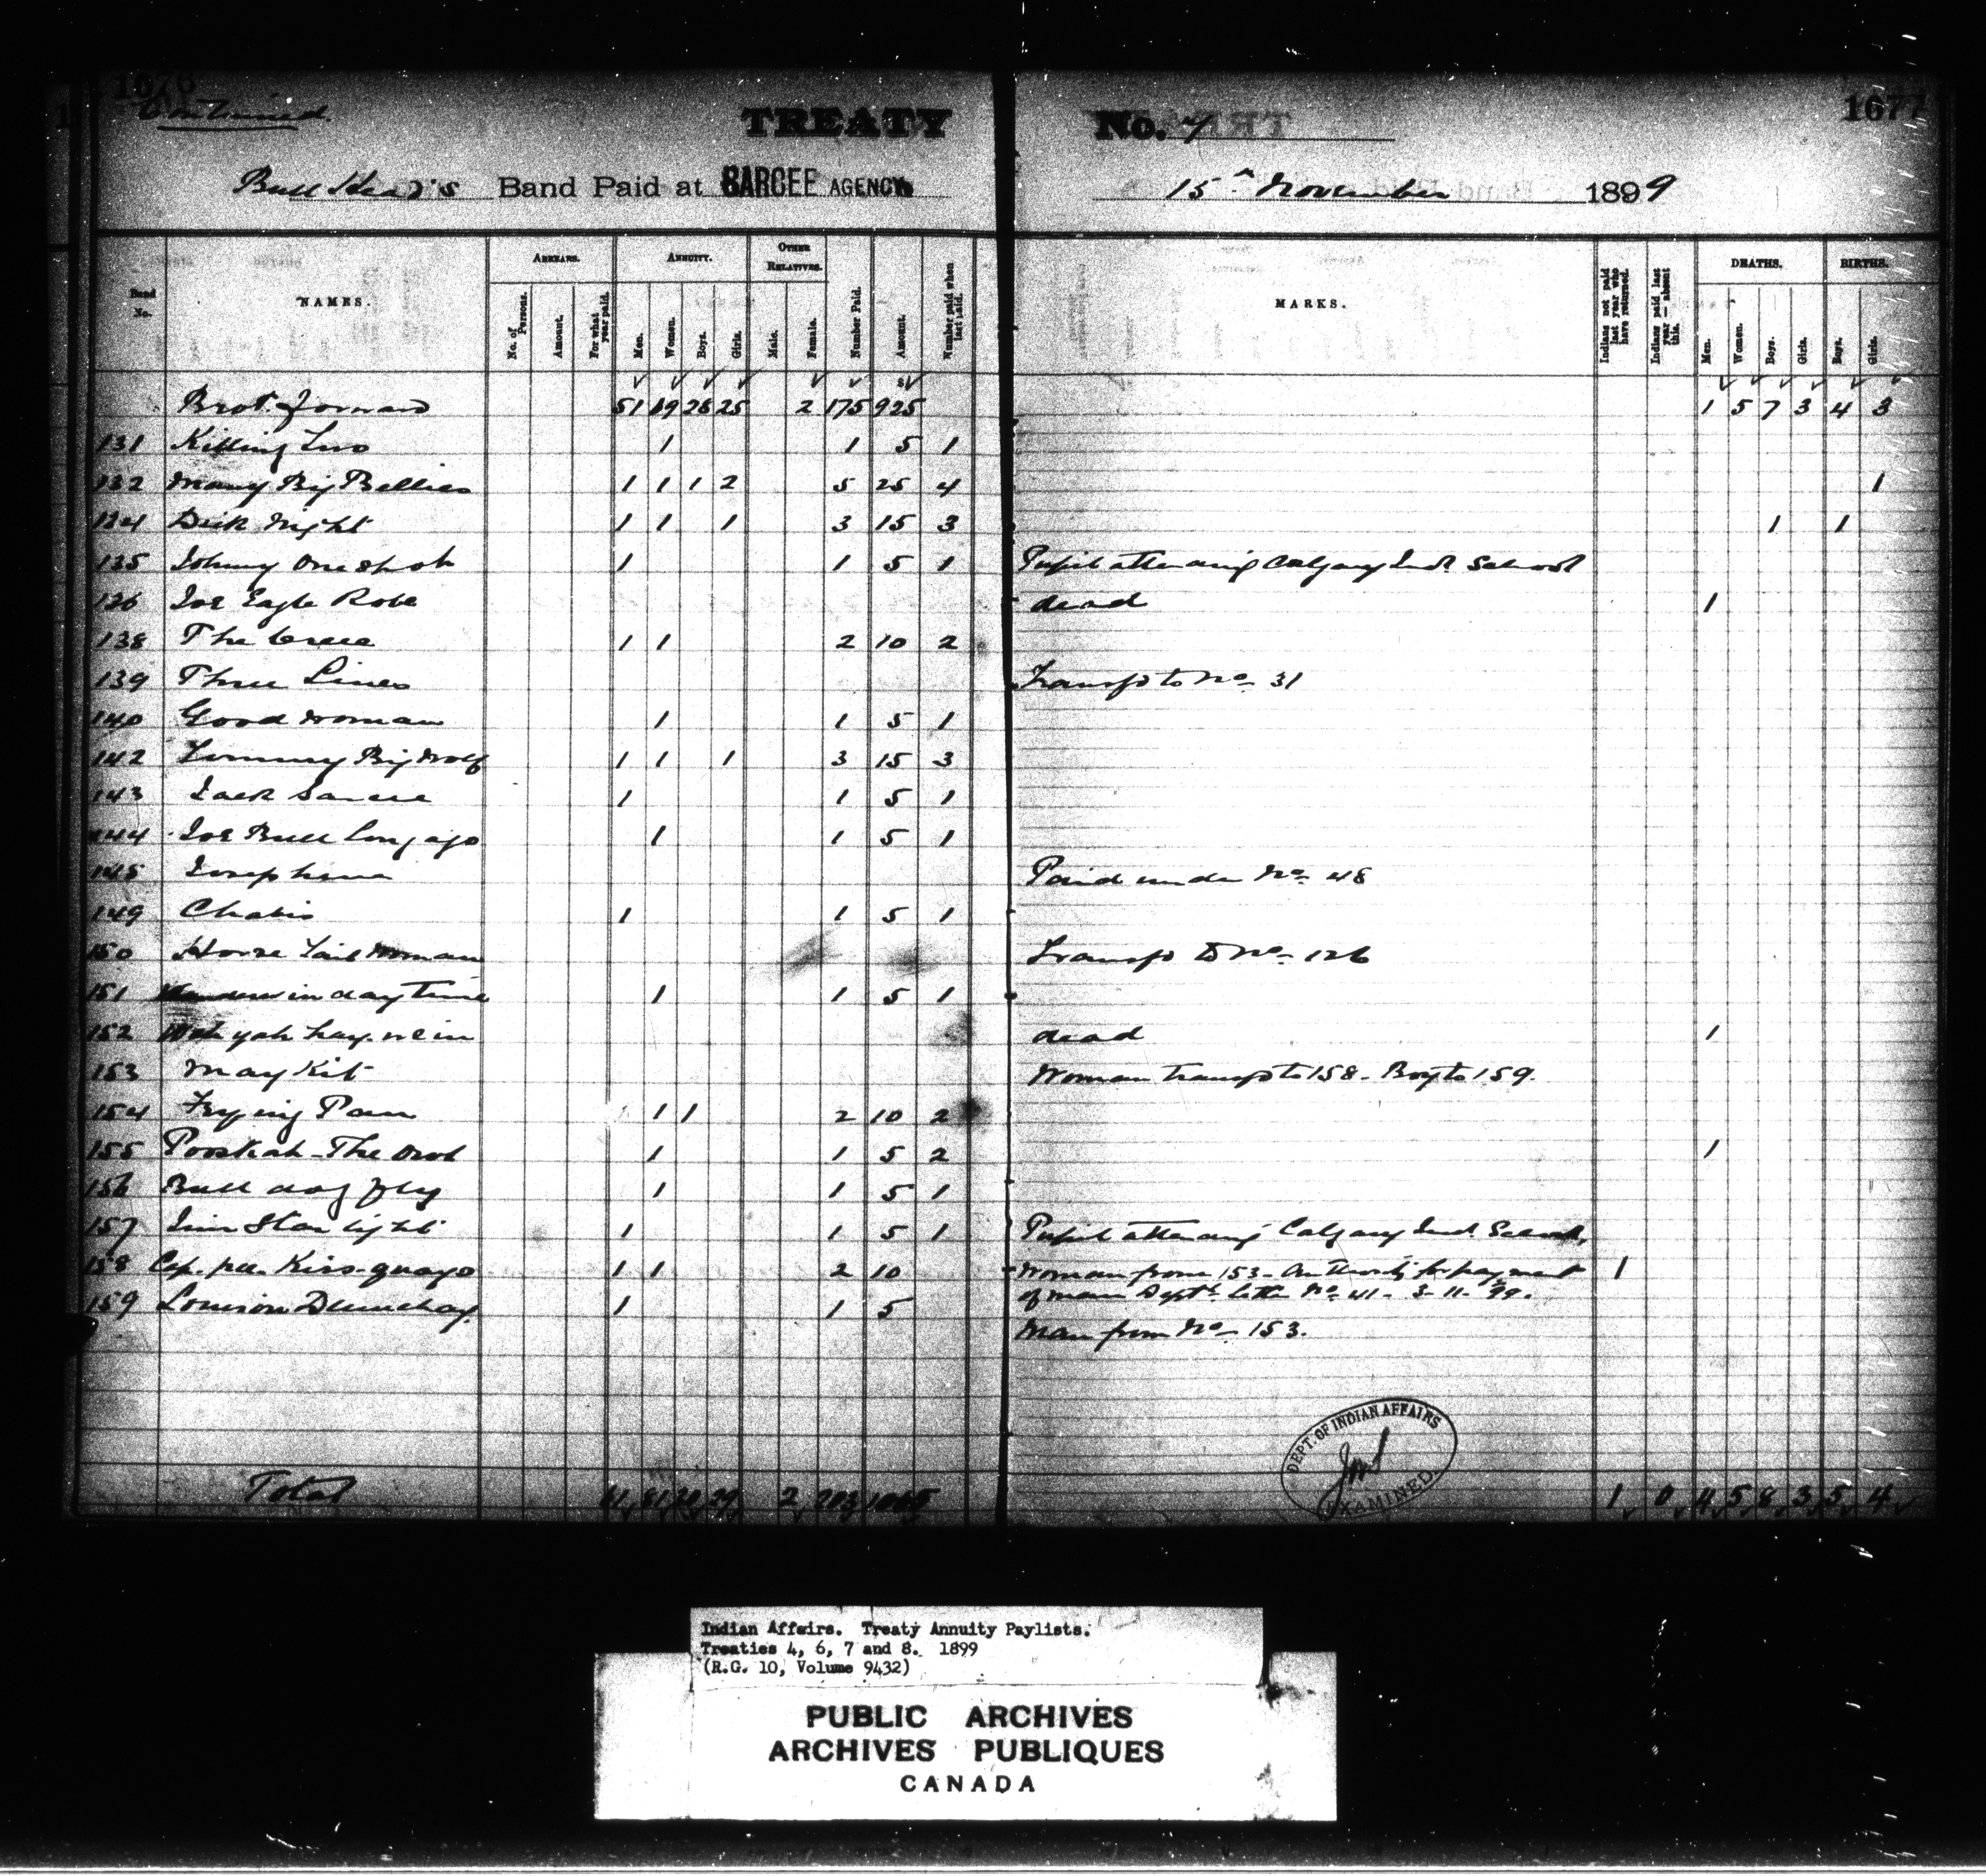 1676
Continued
TREATY No. 7
1677
Bull Head's Band Paid at SARCEE AGENCY 15th November 1899
Band No. NAMES. ARREARS. No. of Persons. Amount. For what year paid. ANNUITY. Men. Women. Boys. Girls. OTHER RELATIVES. Male. Female. Number Paid. Amount. Number paid when last paid. MARKS. Indians not paid last year who have returned. Indians paid last year — absent this. DEATHS. Men. Women. Boys. Girls. BIRTHS. Boys. Girls.
Brot. forward 51 69 28 25 2 175 925 1 5 7 3 4 3
131 Killing Two 1 1 5 1
132 Many Big Bellies 1 1 1 2 5 25 4 1
134 Dick Night 1 1 1 3 15 3 1 1
135 Johnny One Spot 1 1 5 1 Pupil attending Calgary Ind School
136 Joe Eagle Robe dead 1
138 The Cree 1 1 2 10 2
139 Three Lines Transfd to No. 31
140 Good Woman 1 1 5 1
142 Tommy Big Wolf 1 1 1 3 15 3
143 Jack Sarcee 1 1 5 1
144 Joe Bull Long ago 1 1 5 1
145 Josephine Paid under No. 48
149 Chabis 1 1 5 1
150 Horse Tail Woman Transfd to No. 126
151 Wanders in day Time 1 1 5 1
152 dead 1
153 May Kit Woman transfd to 158 - Boy to 159.
154 Frying Pan 1 1 2 10 2
155 Pooskah - The Owl 1 1 5 2 1
156 Bull dog fly 1 1 5 1
157 Jim Starlight 1 1 5 1 Pupil attending Calgary Ind. School,
158 Cap. pee. Kiss-quayo 1 1 2 10 Woman from 153 - Authority for payment 1
of man Dept's letter No. 41 - 3-11-99.
159 Louison 1 1 5
Man from No. 153.
DEPT. OF INDIAN AFFAIRS
EXAMINED.
Total 61 81 29 2 203 1065 1 0 4 5 8 3 5 4
Indian Affairs. Treaty Annuity Paylists.
Treaties 4, 6, 7 and 8. 1899
(R.G. 10, Volume 9432)
PUBLIC ARCHIVES
ARCHIVES PUBLIQUES
CANADA